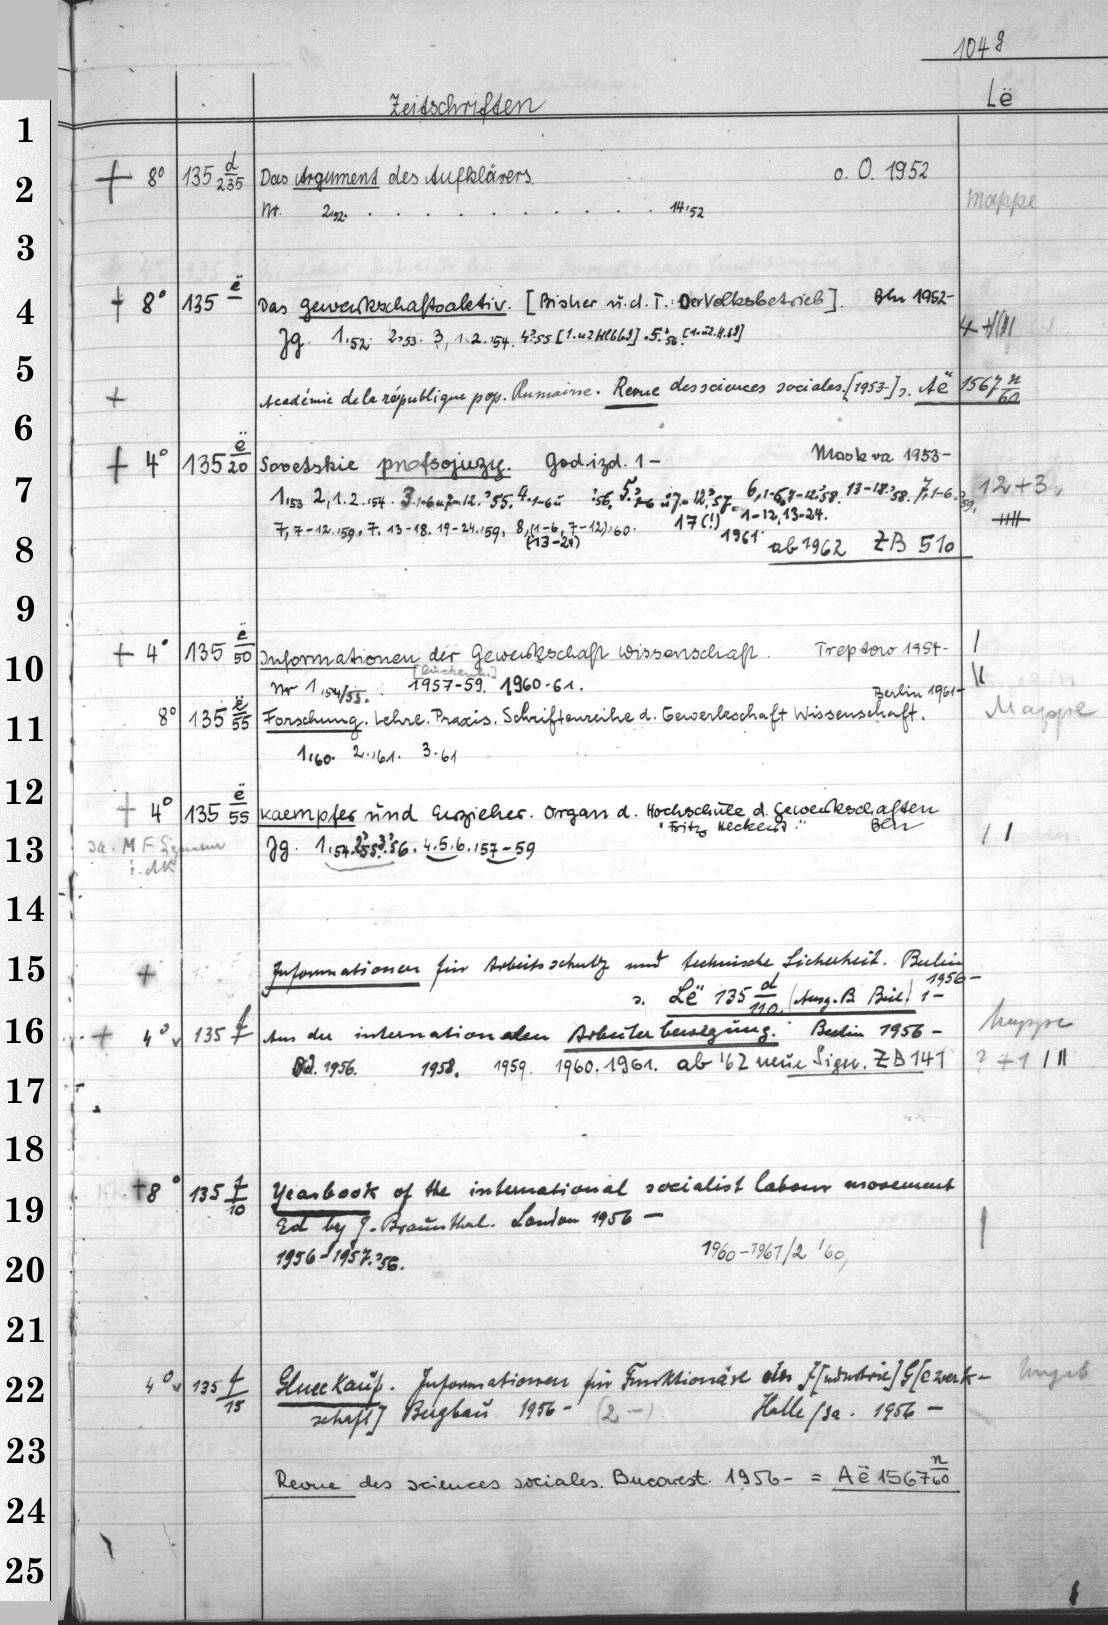 104 g
Zeitschriften Lë
1
2 + 8° 135 d/235 Das Argument des Aufklärers. o. O. 1952
Nr. 2,52. . . . . . . . . . . 14,52 Mappe
3
4 + 8° 135 ë Das Gewerkschaftsaktiv. [Bisher u. d. T.: Der Volksbetrieb]. Bln 1952-
Jg. 1,52. 2,53. 3, 1.2.,54.
5
+ Académie de la république pop. Rumaine. Revue des sciences sociales. [1953-] s. Aë 1567 n/60
6
7 + 4° 135 ë/20 Sovetskie profsojuzy. God izd. 1- Moskva 1953-
1,53 2,1.2.,54. 12+3,
17(!) 1-12, 13-24.
8 7, 7-12,59. 7, 13-18. 19-24,59. 8, (1-6, 7-12),60. 1961.
(13-24) ab 1962 ZB 510
9
10 + 4° 135 ë/50 Informationen der Gewerkschaft Wissenschaft. Treptow 1954-
Nr 1,54/55. 1957-59. 1960-61. Berlin 1961-
11 8° 135 ë/55 Forschung. Lehre. Praxis. Schriftenreihe d. Gewerkschaft Wissenschaft. Mappe
1,60. 2.,61. 3.61
12 + 4° 135 ë/55 Kaempfer und Erzieher. Organ d. Hochschule d. Gewerkschaften
"Fritz Heckert." Bln
13 sa. MF Signatur Jg. 1,54. 2,55. 3,56. 4.5.6.,57-59
i. dK
14
15 + Informationen für Arbeitsschutz und technische Sicherheit. Berlin
1956-
s. Lë 135 d/110. (Ausg. B Beil.) 1-
16 + 4° 135 f Aus der internationalen Arbeiterbewegung. Berlin 1956- Mappe
Bd. 1956. 1958. 1959. 1960. 1961. ab '62 neue Sign. ZB 141 ? +1
17
18
19 + 8° 135 f/10 Yearbook of the international socialist labour movement
Ed by J. Braunthal. London 1956-
20 1956-1957,56. 1960-1961/2 '60,
21
22 4° 135 f/15 Glueckauf. Informationen für Funktionäre der I[ndustrie] G[ewerk-
schaft] Bergbau 1956- (2-) Halle/Sa. 1956-
23
Revue des sciences sociales. Bucarest. 1956- = Aë 1567 n/60
24
25